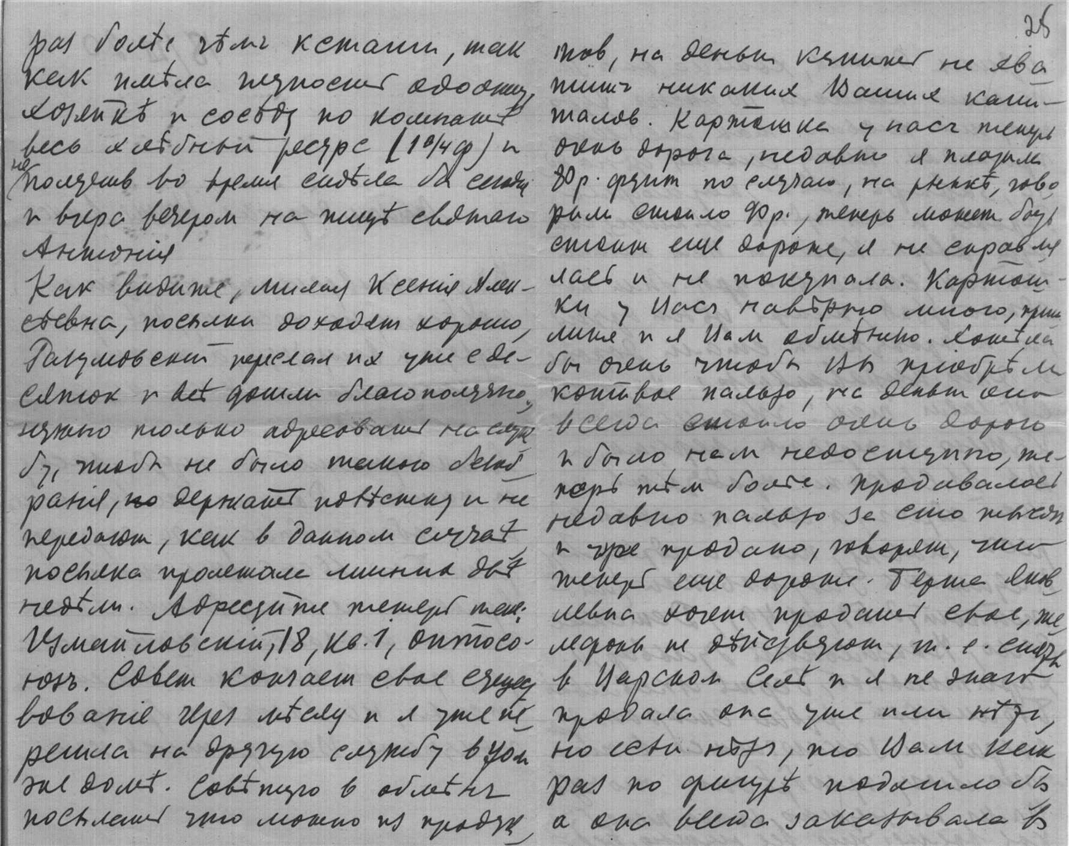 раз болѣе чѣмъ кстати, так
как имѣла переносит одояну,
хозяйкѣ и сосѣду по комнатѣ
весь хлѣбный ресурс (1 0/4 ф) и
не получив во время сидѣла бы сегодня
и вчера вечером на пищѣ святаго
Антонія
Как видите, милая Ксенія Алек-
сѣевна, посылки доходят хорошо,
Разумовскій переслал их уже с де-
сяток и всѣ дошли благополучно,
нужно только адресовать на служ
бу, чтобы не было такого безоб
разія, но держат повѣстку и не
передают, как в данном случаѣ,
посылка пролежала лишних двѣ
недѣли. Адресуйте теперь так:
Измайловскій, 18, кв. 1, оптосо-
юзъ. Совет кончает свое сущест
вованіе через мѣсяц и я уже пе
решла на другую службу в том
же домѣ. Совѣтую в обмѣнъ
посылать что можно из продук
25
тов, на деньги купит не хва
тит никаких Ваших капи-
талов. Картошка у насъ теперь
очень дорога, недавно я платила
р. фунт по случаю, на рынкѣ, гово
рили стоило р., теперь может быть
стоит еще дороже, я не справля
лась и не покупала. Картош-
ки у Васъ навѣрно много, приш
лите и я Вам обмѣню. Хотѣла
бы очень чтобы Вы пріобрѣли
котовое пальто, на деньги оно
всегда стоило очень дорого
и было нам недоступно, те-
перь тѣм болѣе. Продавалось
недавно пальто за сто тысяч
и уже продано, говорят, что
теперь еще дороже. Берта Яков
левна хочет продать свое, те
лефоны не дѣйствуют, т. е. станція
в Царском Селѣ и я не знаю
продала она уже или нѣтъ,
но если нѣтъ, то Вам как
раз по фигурѣ подошло бы
а она всегда заказывала в